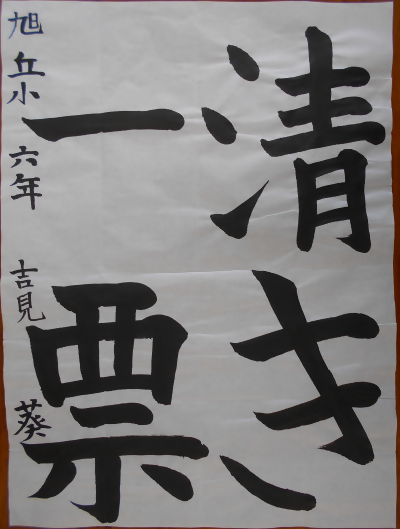 清き
一票
旭丘小 六年 吉見 葵